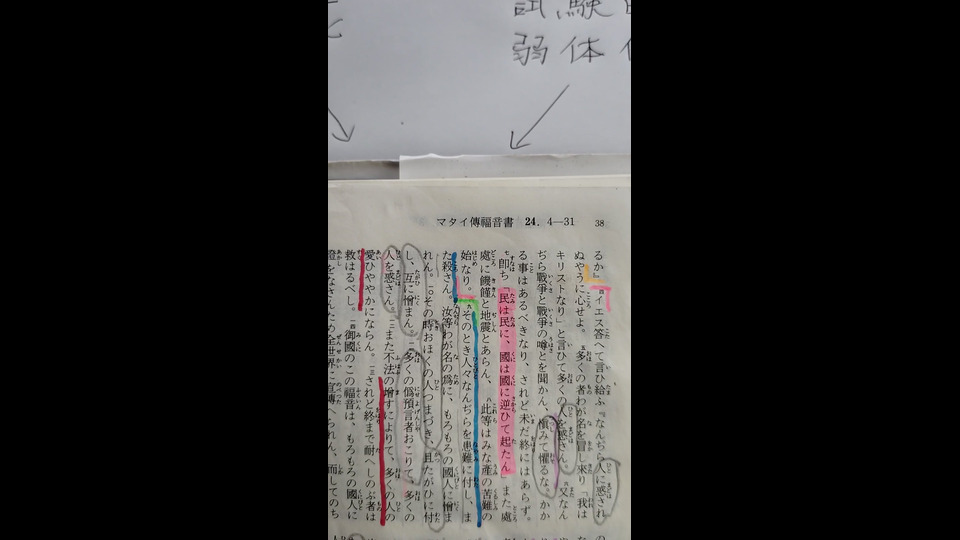 試験
弱体
マタイ傳福音書 24. 4—31 38
るか』四イエス答へて言ひ給ふ『なんぢら人に惑され
ぬやうに心せよ。五多くの者わが名を冒し來り「我は
キリストなり」と言ひて多くの人を惑さん。六又なん
ぢら戰爭と戰爭の噂とを聞かん、愼みて懼るな。かか
る事はあるべきなり、されど未だ終にはあらず。
七即ち「民は民に、國は國に逆ひて起たん」また處
處に饑饉と地震とあらん、八此等はみな産の苦難の
始なり。九そのとき人々なんぢらを患難に付し、ま
た殺さん。汝等わが名の爲に、もろもろの國人に憎ま
れん。一〇その時おほくの人つまづき、且たがひに付
し、互に憎まん。一一多くの僞預言者おこりて、多くの
人を惑さん。一二また不法の増すによりて、多くの人の
愛ひややかにならん。一三されど終まで耐へしのぶ者は
救はるべし。一四御國のこの福音は、もろもろの國人に
證をなさんため全世界に宣傳へられん、而してのち